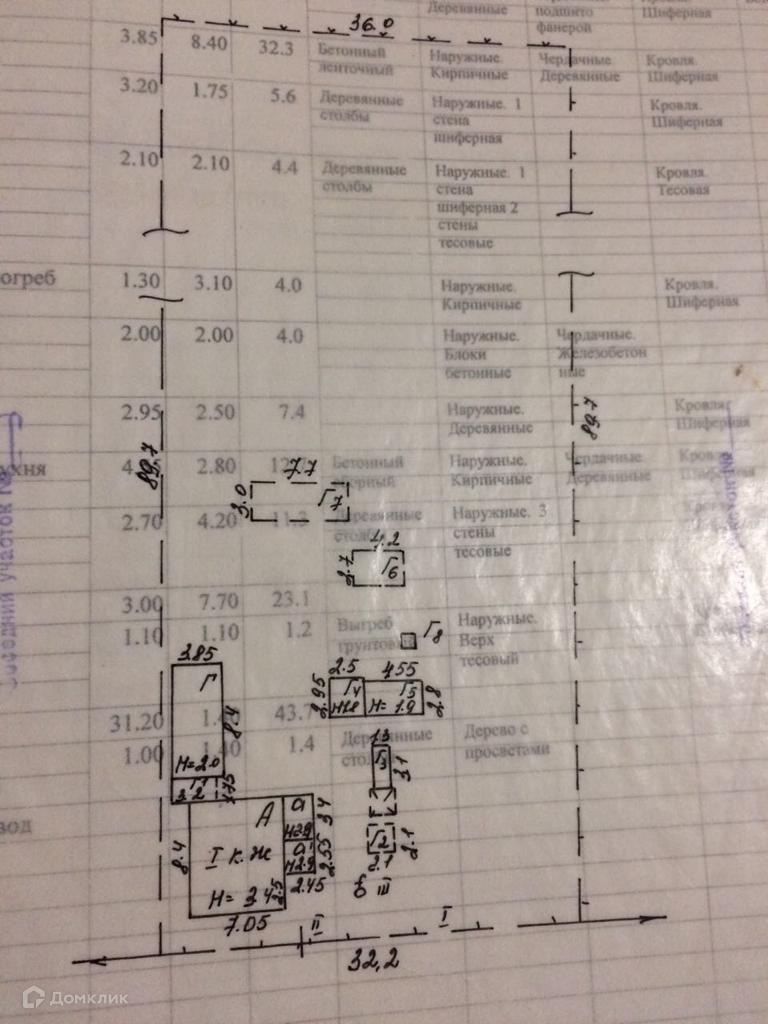 Деревянные
подшито
фанерой
Кровля.
Шиферная
36.0
3.85 8.40 32.3 Бетонный ленточный Наружные. Кирпичные Чердачные. Деревянные Кровля. Шиферная
3.20 1.75 5.6 Деревянные столбы Наружные. 1 стена шиферная Кровля. Шиферная
2.10 2.10 4.4 Деревянные столбы Наружные. 1 стена шиферная 2 стены тесовые Кровля. Тесовая
огреб 1.30 3.10 4.0 Наружные. Кирпичные Кровля. Шиферная
2.00 2.00 4.0 Наружные. Блоки бетонные Чердачные. Железобетон ные
2.95 2.50 7.4 Наружные. Деревянные Кровля. Шиферная
ухня 2.80 Бетонный Наружные. Кирпичные Чердачные. Деревянные
2.70 4.20 11.3 Деревянные Наружные. 3 стены тесовые
3.00 7.70 23.1
1.10 1.10 1.2 Выгреб грунтовый Наружные. Верх тесовый
31.20 43.7
1.00 1.40 1.4 Деревянные Дерево с просветами
вод
89,7
89,7
7.7
3.0
Г7
4.2
2.7
Г6
Г8
3.85
Г
8.4
Н=2.0
Г1
3.2
1.75
2.5
4.55
2.95
Г4
Г5
Н=1.9
2.8
1.3
Г3
3.1
Г2
2.1
2.1
А
а
3.4
I к.ж
8.4
а
2.55
Н2.9
Н=
2.45
7.05
б III
II
I
32,2
Соседний участок №
Домклик